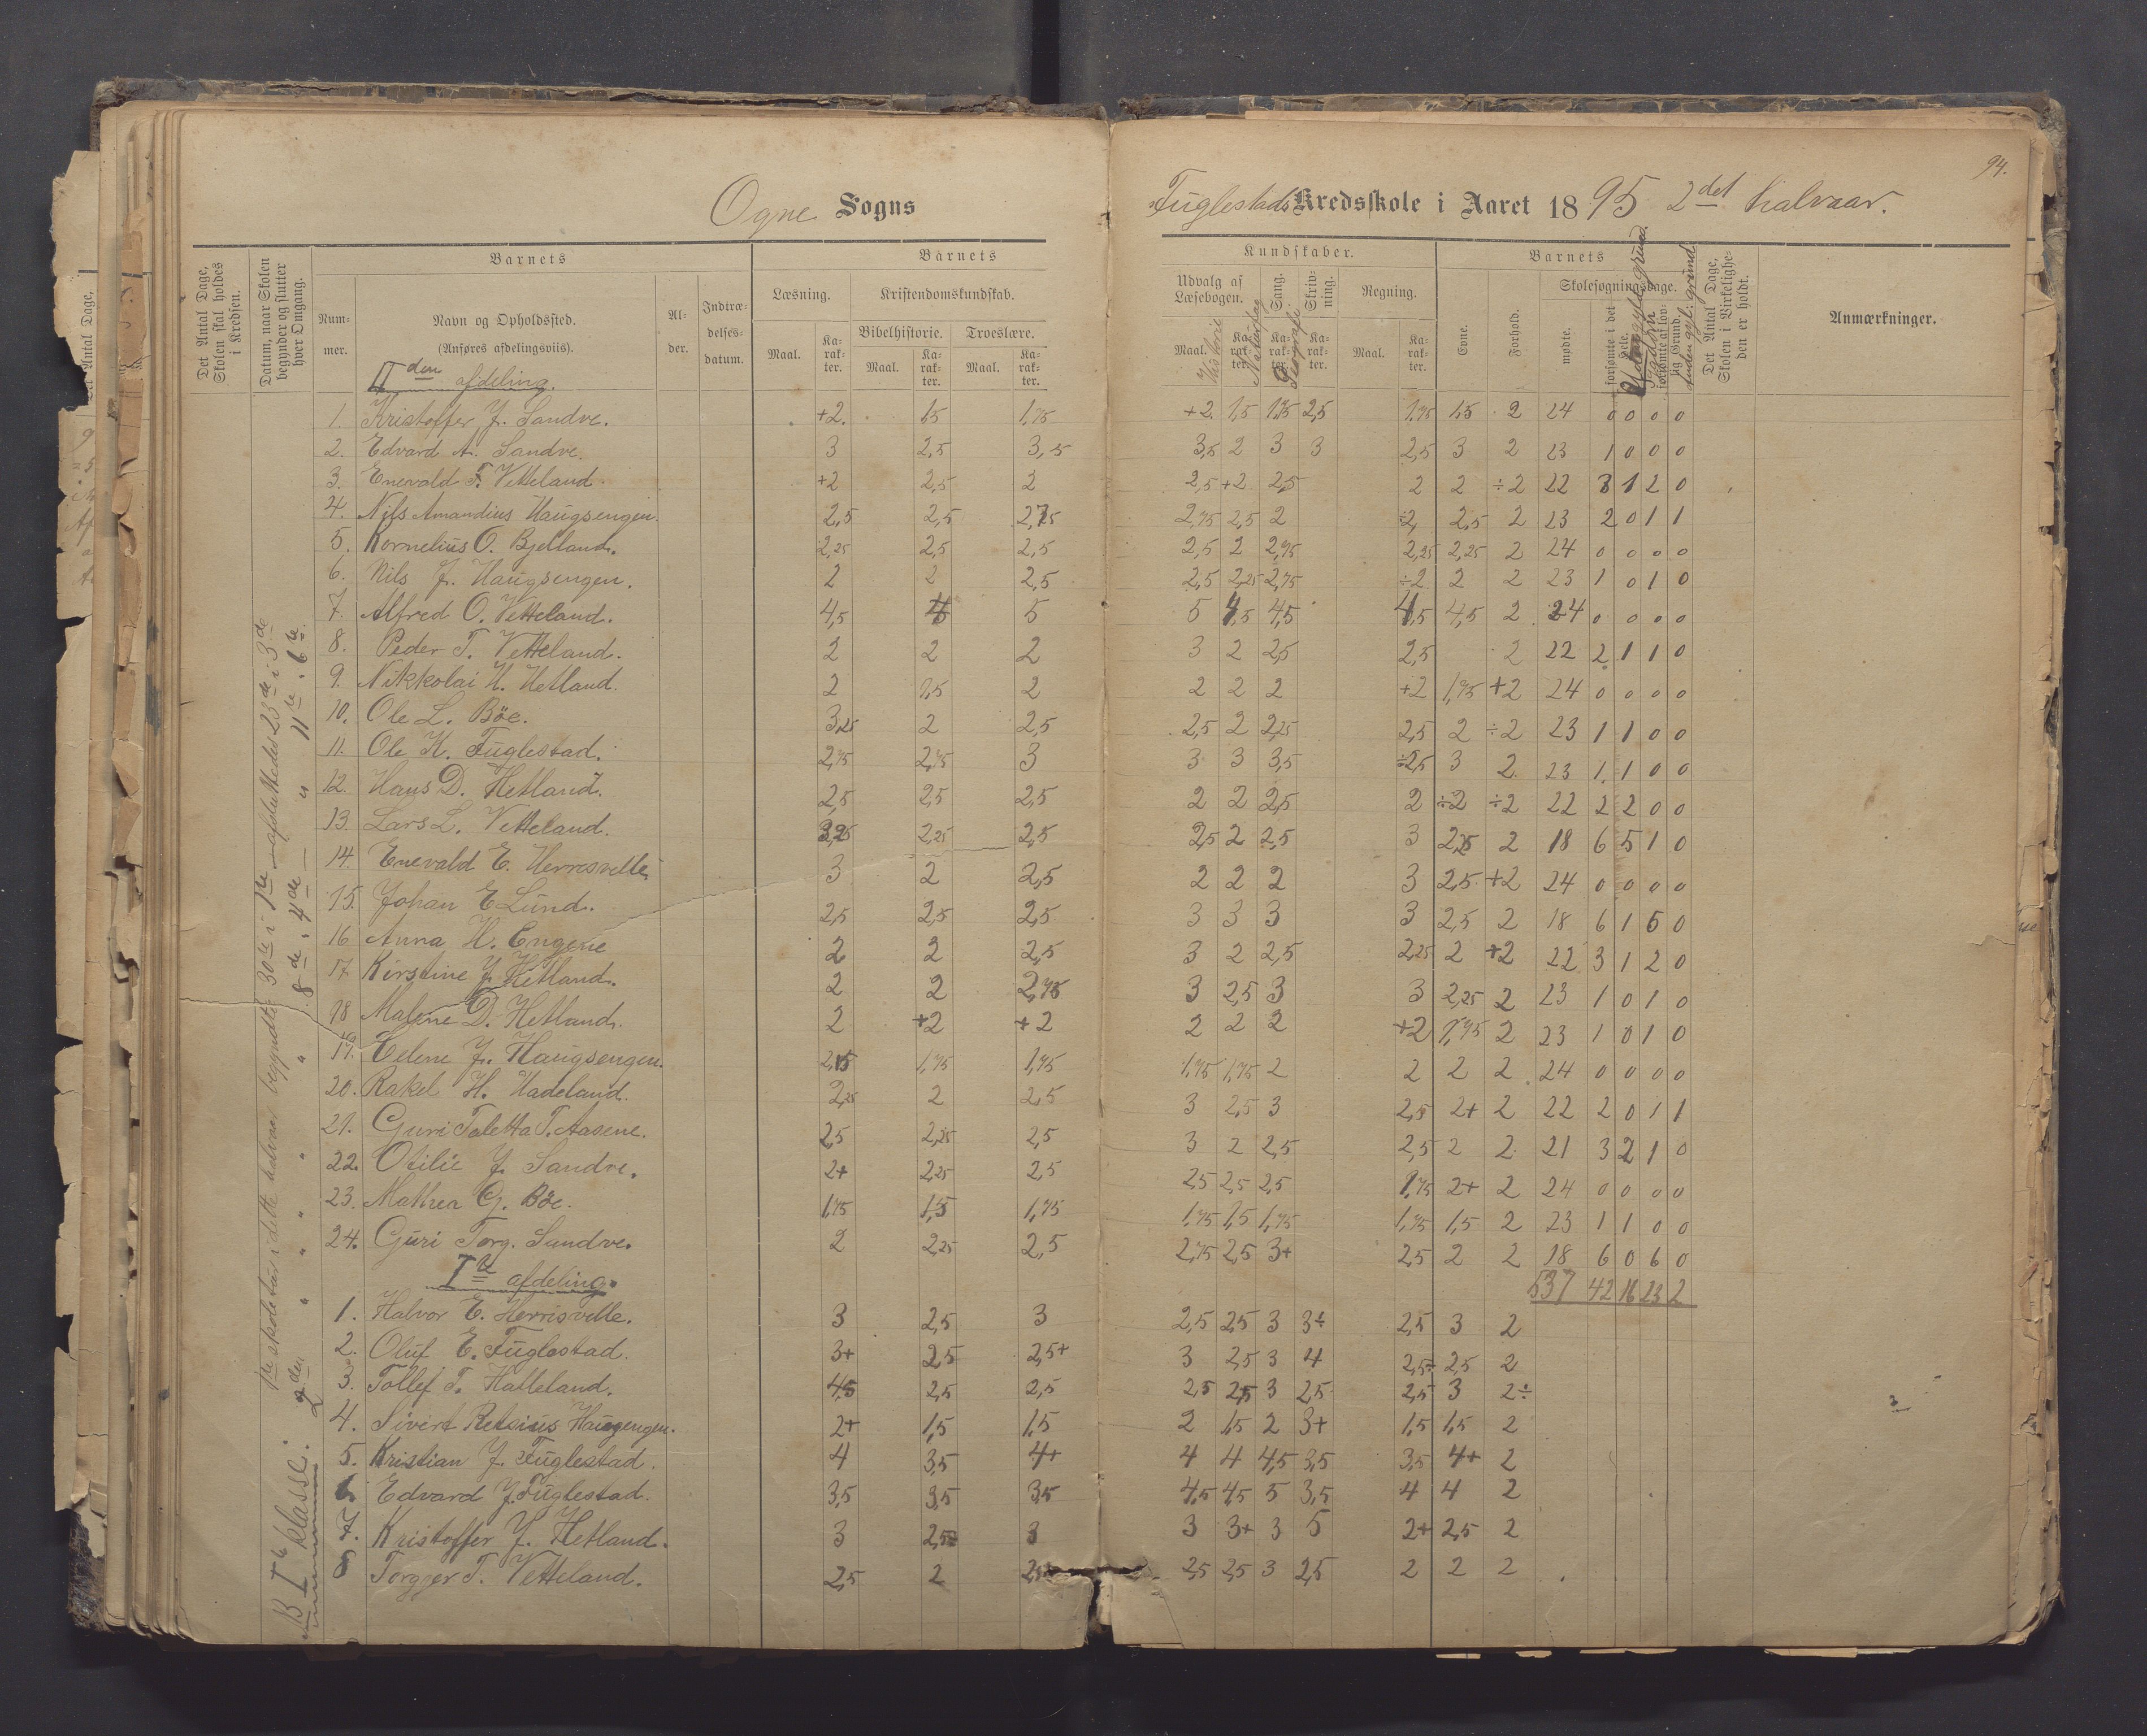 94.
Ogne Sogns
Fuglestads Kredsskole i Aaret 1895 2det halvaar.
Det Antal Dage, Skolen skal holdes i Kredsen.
Datum, naar Skolen begynder og slutter hver Omgang.
Barnets
Nummer.
Navn og Opholdssted.
(Anføres afdelingsviis).
Alder.
Indtrædelsesdatum.
Barnets
Læsning.
Kristendomskundskab.
Bibelhistorie.
Troeslære.
Maal.
Karakter.
Maal.
Karakter.
Maal.
Karakter.
Kundskaber.
Udvalg af Læsebogen.
Sang.
Skrivning.
Regning.
Historie
Geografi
Maal.
Karakter.
Karakter.
Karakter.
Maal.
Karakter.
Barnets
Evne.
Forhold.
Skolesøgningsdage.
mødte.
forsømte i det Hele.
forsømte af lovlig Grund.
Det Antal Dage, Skolen i Virkeligheden er holdt.
Anmærkninger.
IIden afdeling.
1. Kristoffer J. Sandve. +2. 1,5 1,75 +2. 1,5 1,75 2,5 1,75 1,5 2 24 0 0 0 0
2. Edvard A. Sandve. 3 2,5 3,5 3,5 2 3 3 2,5 3 2 23 1 0 0 0
3. Enevald T. Vetteland. +2 2,5 2 2,5 +2 2,5 2 2 ÷2 22 3 1 2 0
4. Nils Amandius Haugsengen. 2,5 2,5 2,75 2,75 2,5 2 ÷2 2,5 2 23 2 0 1 1
5. Kornelius O. Bjelland. 2,25 2,5 2,5 2,5 2 2,75 2,25 2,25 2 24 0 0 0 0
6. Nils J. Haugsengen. 2 2 2,5 2,5 2,25 2,75 ÷2 2 2 23 1 0 1 0
7. Alfred O. Vetteland. 4,5 4 5 5 4,5 4,5 4,5 4,5 2 24 0 0 0 0
8. Peder T. Vetteland. 2 2 2 3 2 2,5 2,5 2 22 2 1 1 0
9. Nikkolai H. Hetland. 2 1,5 2 2 2 2 +2 1,75 +2 24 0 0 0 0
10. Ole L. Böe. 3,25 2 2,5 2,5 2 2,25 2,5 2 ÷2 23 1 1 0 0
11. Ole K. Fuglestad. 2,75 2,75 3 3 3 3,5 ÷2,5 3 2 23 1 1 0 0
12. Hans D. Hetland. 2,5 2,5 2,5 2 2 2,5 2 ÷2 ÷2 22 2 2 0 0
13. Lars L. Vetteland. 3,25 2,25 2,5 2,5 2 2,5 3 2,25 2 18 6 5 1 0
14. Enevald E. Herresvelle 3 2 2,5 2 2 2 3 2,5 +2 24 0 0 0 0
15. Johan E Lund. 2,5 2,5 2,5 3 3 3 3 2,5 2 18 6 1 5 0
16 Anna H. Engene 2 2 2,5 3 2 2,5 2,25 2 +2 22 3 1 2 0
17 Kirstine J. Hetland. 2 2 2,75 3 2,5 3 3 2,25 2 23 1 0 1 0
18 Malene D. Hetland. 2 +2 +2 2 2 2 +2 1,75 2 23 1 0 1 0
19. Eelene J. Haugsengen. 1,75 1,75 1,75 1,75 2 2 2 2 24 0 0 0 0
20. Rakel H. Hadeland. 2,25 2 2,5 3 2,5 3 2,5 2+ 2 22 2 0 1 1
21. Guri Taletta T. Aasene. 2,5 2,25 2,5 3 2 2,5 2,5 2 2 21 3 2 1 0
22. Otilie J. Sandve. 2+ 2,25 2,5 2,5 2,5 2,5 1,75 2+ 2 24 0 0 0 0
23. Mathea G. Böe. 1,75 1,5 1,75 1,75 1,5 1,75 1,75 1,5 2 23 1 1 0 0
24. Guri Torg. Sandve. 2 2,25 2,5 2,75 2,5 3+ 2,5 2 2 18 6 0 6 0
537 42 16 23 2
Ite afdeling.
1. Halvor E. Herrisvelle. 3 2,5 3 2,5 2,5 3 3÷ 2,5 3 2
2. Oluf E. Fuglestad. 3+ 2,5 2,5+ 3 2,5 3 4 2,5÷ 2,5 2
3. Tollef T. Hatleland. 4,5 2,5 2,5 2,5 2,5 3 2,5 2,5 3 2÷
4. Sivert Retsius Haugengen. 2+ 1,5 1,5 2 1,5 2 3+ 1,5 1,5 2
5. Kristian J. Fuglestad. 4 3,5 4+ 4 4 4,5 3,5 3,5 4+ 2
6 Edvard J. Fuglestad. 3,5 3,5 3,5 4,5 4,5 5 3,5 4 4 2
7. Kristoffer J. Hetland. 3 2,5 3 3 3+ 3 5 2+ 2,5 2
8 Torgger T. Vetteland. 2,5 2 2,5 2,5 3 2,5 2 2 2
1ste skoletur i dette halvaar begyndte 30te i 1ste afsluttedes 23de i 3de
2den " " " " " 8de " 4de — " 11te " 6te
NB Ite klasse: